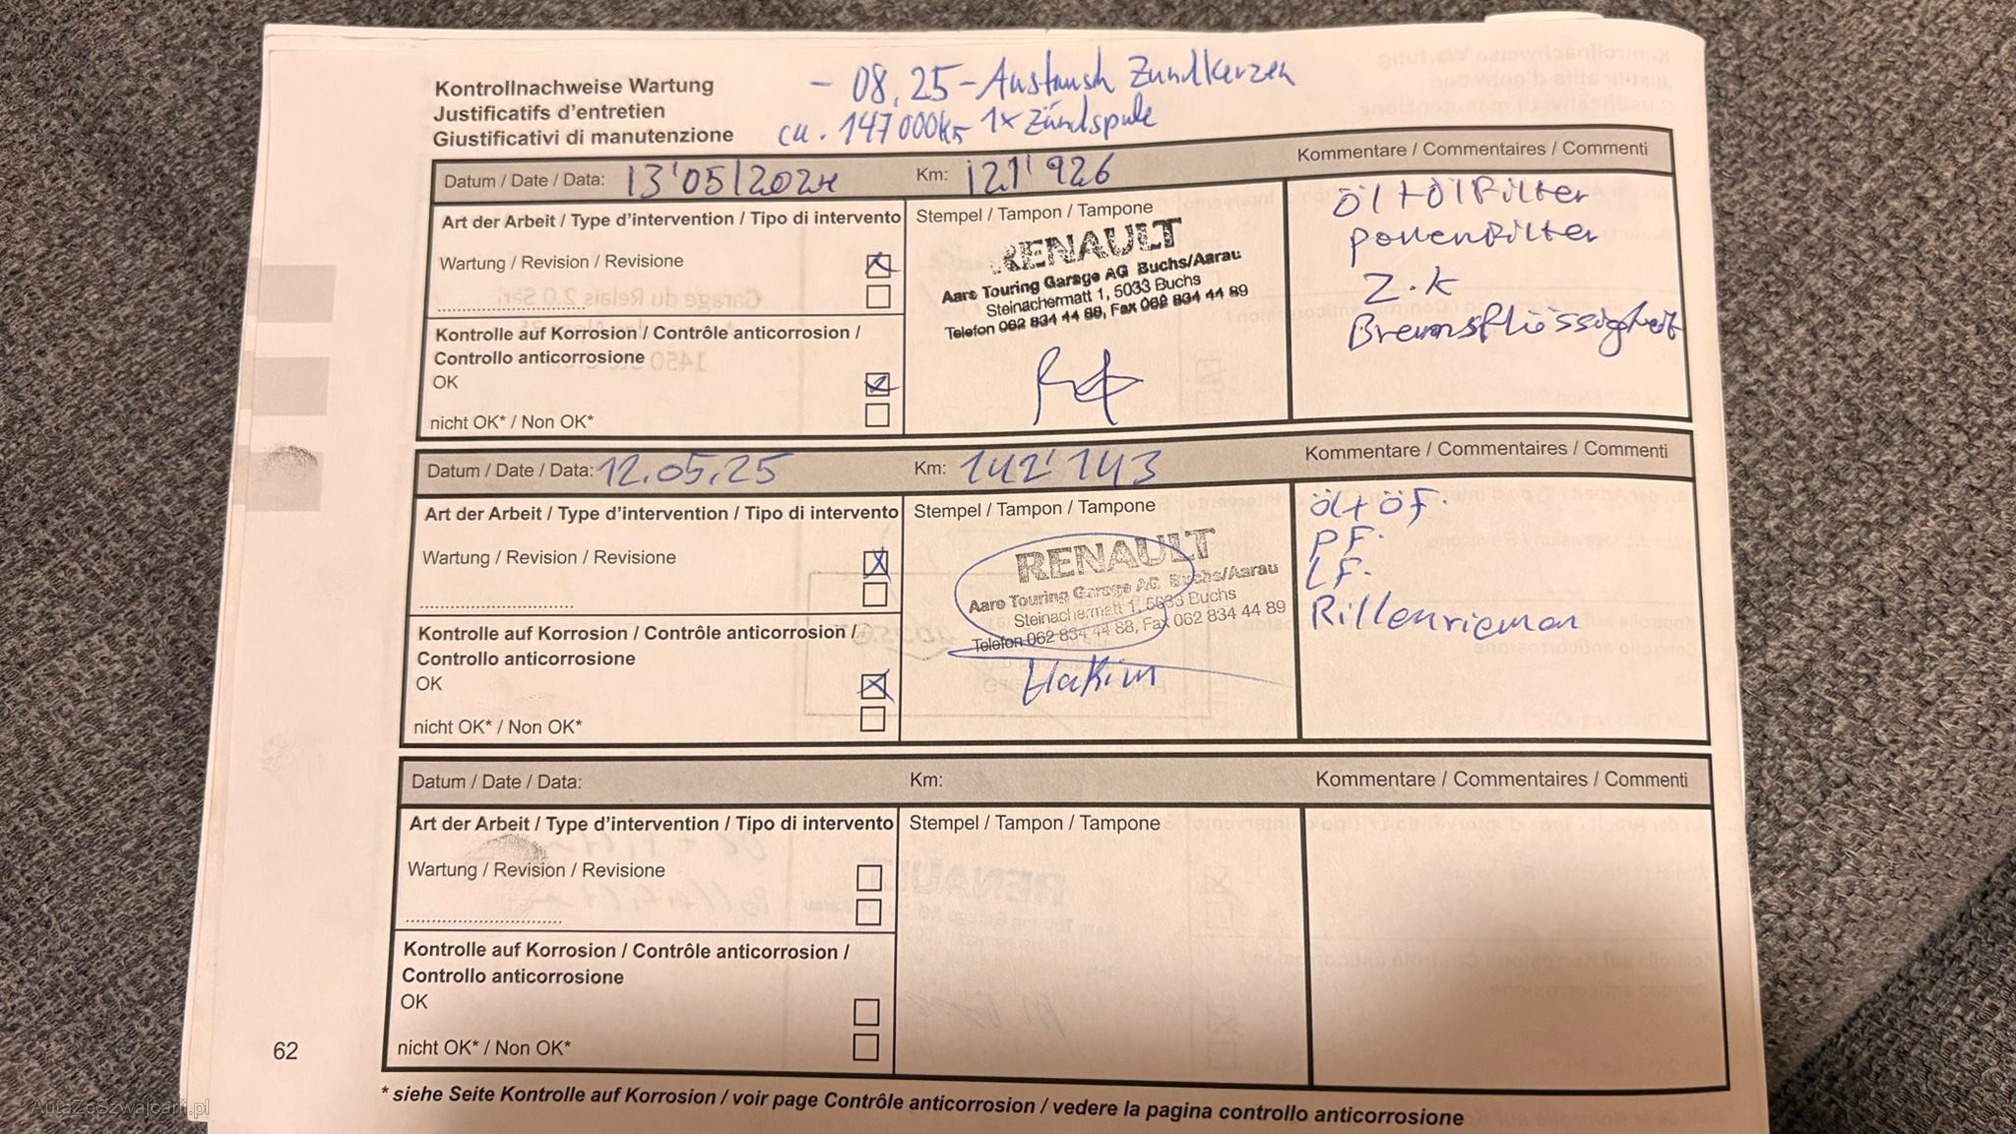 Kontrollnachweise Wartung
Justificatifs d'entretien
Giustificativi di manutenzione
- 08.25 - Austausch Zündkerzen
ca. 147000km 1x Zündspule
Datum / Date / Data: 13'05/2024 Km: 121'926 Kommentare / Commentaires / Commenti
Art der Arbeit / Type d'intervention / Tipo di intervento
Wartung / Revision / Revisione
Kontrolle auf Korrosion / Contrôle anticorrosion /
Controllo anticorrosione
OK
nicht OK* / Non OK*
Stempel / Tampon / Tampone
RENAULT
Aare Touring Garage AG Buchs/Aarau
Steinachermatt 1, 5033 Buchs
Telefon 062 834 44 88, Fax 062 834 44 89
Öl+Ölfilter
Pollenfilter
Z.K
Bremsflüssigkeit
Datum / Date / Data: 12.05.25 Km: 142'143 Kommentare / Commentaires / Commenti
Art der Arbeit / Type d'intervention / Tipo di intervento
Wartung / Revision / Revisione
Kontrolle auf Korrosion / Contrôle anticorrosion /
Controllo anticorrosione
OK
nicht OK* / Non OK*
Stempel / Tampon / Tampone
RENAULT
Aare Touring Garage AG Buchs/Aarau
Steinachermatt 1, 5033 Buchs
Telefon 062 834 44 88, Fax 062 834 44 89
Hakim
Öl+ÖF.
PF.
LF.
Rillenriemen
Datum / Date / Data: Km: Kommentare / Commentaires / Commenti
Art der Arbeit / Type d'intervention / Tipo di intervento
Wartung / Revision / Revisione
Kontrolle auf Korrosion / Contrôle anticorrosion /
Controllo anticorrosione
OK
nicht OK* / Non OK*
Stempel / Tampon / Tampone
62
* siehe Seite Kontrolle auf Korrosion / voir page Contrôle anticorrosion / vedere la pagina controllo anticorrosione
AutaZeSzwajcarii.pl